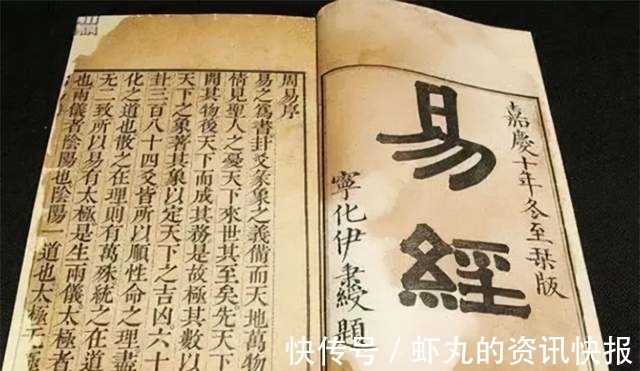 嘉慶十年冬至栞版
易經
寧化伊秉綬題
周易序
易之爲書卦爻彖象之義備而天地萬物
情見聖人之憂天下來世其至矣先天下
開其物後天下而成其務是故極其數以
天下之象著其象以定天下之吉凶六十
卦三百八十四爻皆所以順性命之理盡
化之道也散之在理則有萬殊統之在
無二致所以易有太極是生兩儀太極
也兩儀者陰陽也陰陽一道也太極无極
快传号/虾丸的资讯快报